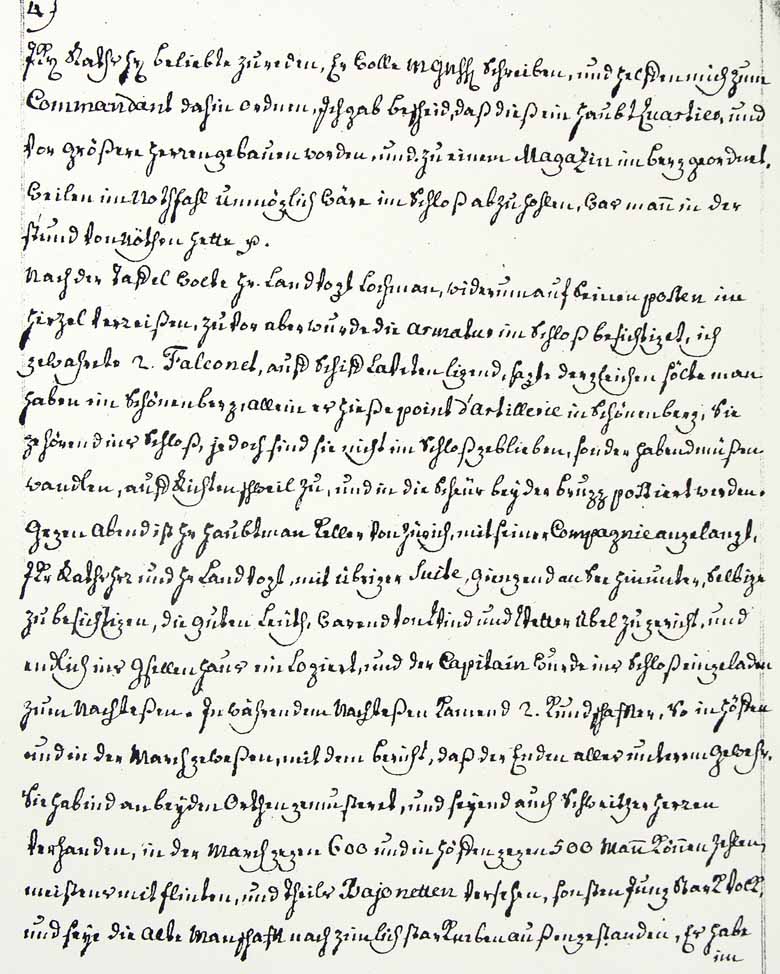 4)
JKr Rathshr beliebte zureden, Er wolle MGnHH Schreiben, und helffen mich zum
Commandant dahin ordnen, Jch gab bescheid, daß dieß ein HaubtQuartier, und
vor größere Herren gebauen worden, und zu einem Magazin im berg geordnet,
weilen im Nothfahl unmöglich wäre im Schloß abzuhohlen, was mañ in der
stund vonNöthen hette
Nach der Taffel wolte Hr. Landvogt Lochman, widerum auf seinen posten im
Hirzel verreißen, zuvor aber wurde die Armatur im Schloß besichtiget, ich
gewahrete 2. Falconet, auff Schiff Lafeten ligend, sagte dergleichen sölte man
haben im Schönenberg, allein es hieße point d'Artillerie in Schönenberg, Sie
gehörend ins Schloß, jedoch sind sie nicht im Schloß geblieben, sonder habend müßen
wandlen, auff Richtenschweil zu, und in die Scheür bey der brugg postiert werden.
Gegen Abend ist Hr Haubtman Keller von Zürich, mit seiner Compagnie angelangt,
JKr Rathshr und Hr Landvogt, mit übriger Suite, giengend an See hinunter, Selbige
zu besichtigen, die guten Leüth, warend von Wind und Wetter übel zugericht, und
endlich ins Gsellenhaus ein Logiert, und der Capitain wurde ins Schloß eingeladen
zum Nachteßen. In währendem Nachteßen kamend 2. Kundschaffter, so in Höffen
und in der March geweßen, mit dem bericht, daß der Enden alles unterem Gewehr,
Sie habind an beyden Orthen gemusteret, und seyend auch Schweitzer Herren
verhanden, in der March gegen 600 und in Höffen gegen 500 Mañ köñen zehlen,
meistens mit flinten, und theils Bajonetten versehen, sonsten Jung Stark Volk,
und seye die Alte Manschafft nach zimlich stark darben außengestanden, Er habe
im